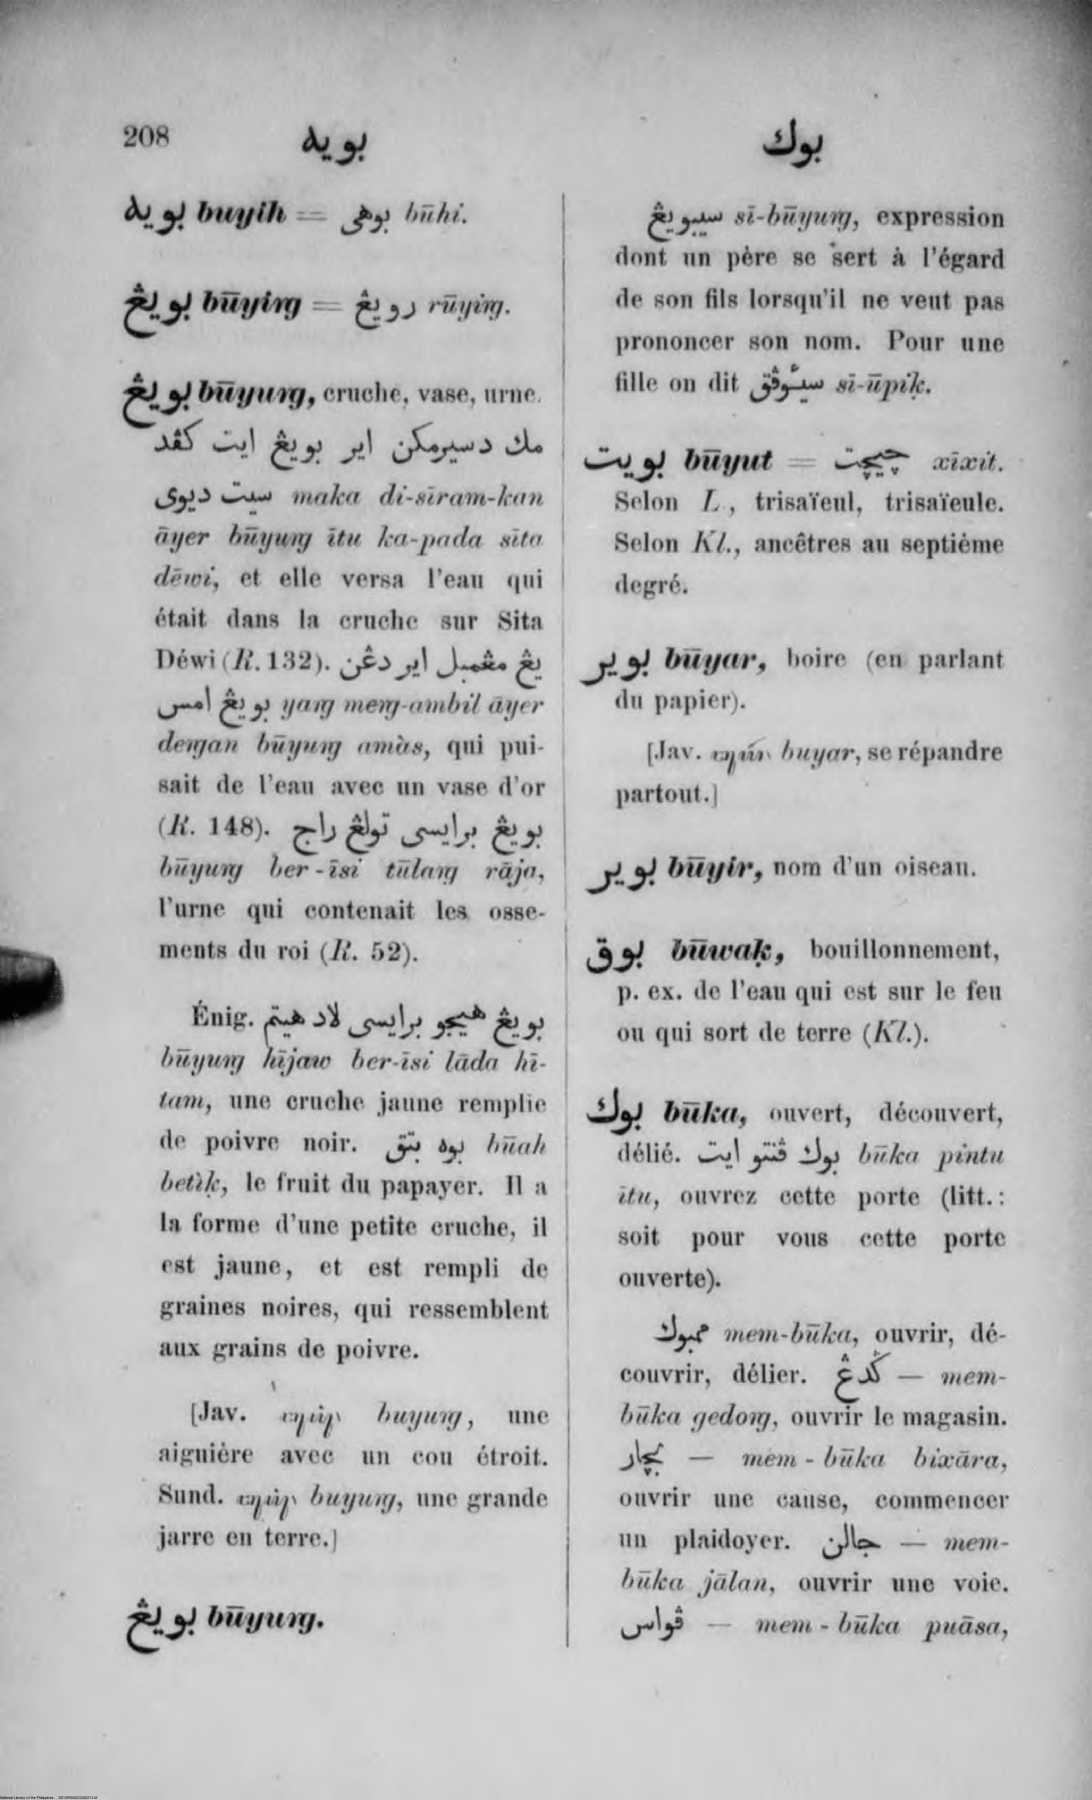 208
بويه
بوك
بويه buyih = بوهي būhi.
بويڠ būyiŋ = رويڠ rūyiŋ.
بويڠ būyuŋ, cruche, vase, urne.
مك دسيرمكن اير بويڠ ايت كڤد
سيت ديوي maka di-sīram-kan
āyer būyuŋ ītu ka-pada sīta
dēwi, et elle versa l'eau qui
était dans la cruche sur Sita
Déwi (R. 132). يڠ مڠمبل اير دڠن
بويڠ امس yaŋ meŋ-ambil āyer
deŋan būyuŋ amàs, qui pui-
sait de l'eau avec un vase d'or
(R. 148). بويڠ برايسي تولڠ راج
būyuŋ ber-īsi tūlaŋ rāja,
l'urne qui contenait les osse-
ments du roi (R. 52).
Énig. بويڠ هيجو برايسي لاد هيتم
būyuŋ hījaw ber-īsi lāda hī-
tam, une cruche jaune remplie
de poivre noir. بوه بتق būah
betìḳ, le fruit du papayer. Il a
la forme d'une petite cruche, il
est jaune, et est rempli de
graines noires, qui ressemblent
aux grains de poivre.
[Jav. buyuŋ, une
aiguière avec un cou étroit.
Sund. buyuŋ, une grande
jarre en terre.]
بويڠ būyuŋ.
سيبويڠ sī-būyuŋ, expression
dont un père se sert à l'égard
de son fils lorsqu'il ne veut pas
prononcer son nom. Pour une
fille on dit سيئوڤق sī-ūpiḳ.
بويت būyut = چيچت xīxit.
Selon L., trisaïeul, trisaïeule.
Selon Kl., ancêtres au septième
degré.
بوير būyar, boire (en parlant
du papier).
[Jav. buyar, se répandre
partout.]
بوير būyir, nom d'un oiseau.
بوق būwaḳ, bouillonnement,
p. ex. de l'eau qui est sur le feu
ou qui sort de terre (Kl.).
بوك būka, ouvert, découvert,
délié. بوك ڤنتو ايت būka pintu
ītu, ouvrez cette porte (litt.:
soit pour vous cette porte
ouverte).
ممبوك mem-būka, ouvrir, dé-
couvrir, délier. گدڠ — mem-
būka gedoŋ, ouvrir le magasin.
بچار — mem-būka bixāra,
ouvrir une cause, commencer
un plaidoyer. جالن — mem-
būka jālan, ouvrir une voie.
ڤواس — mem-būka puāsa,